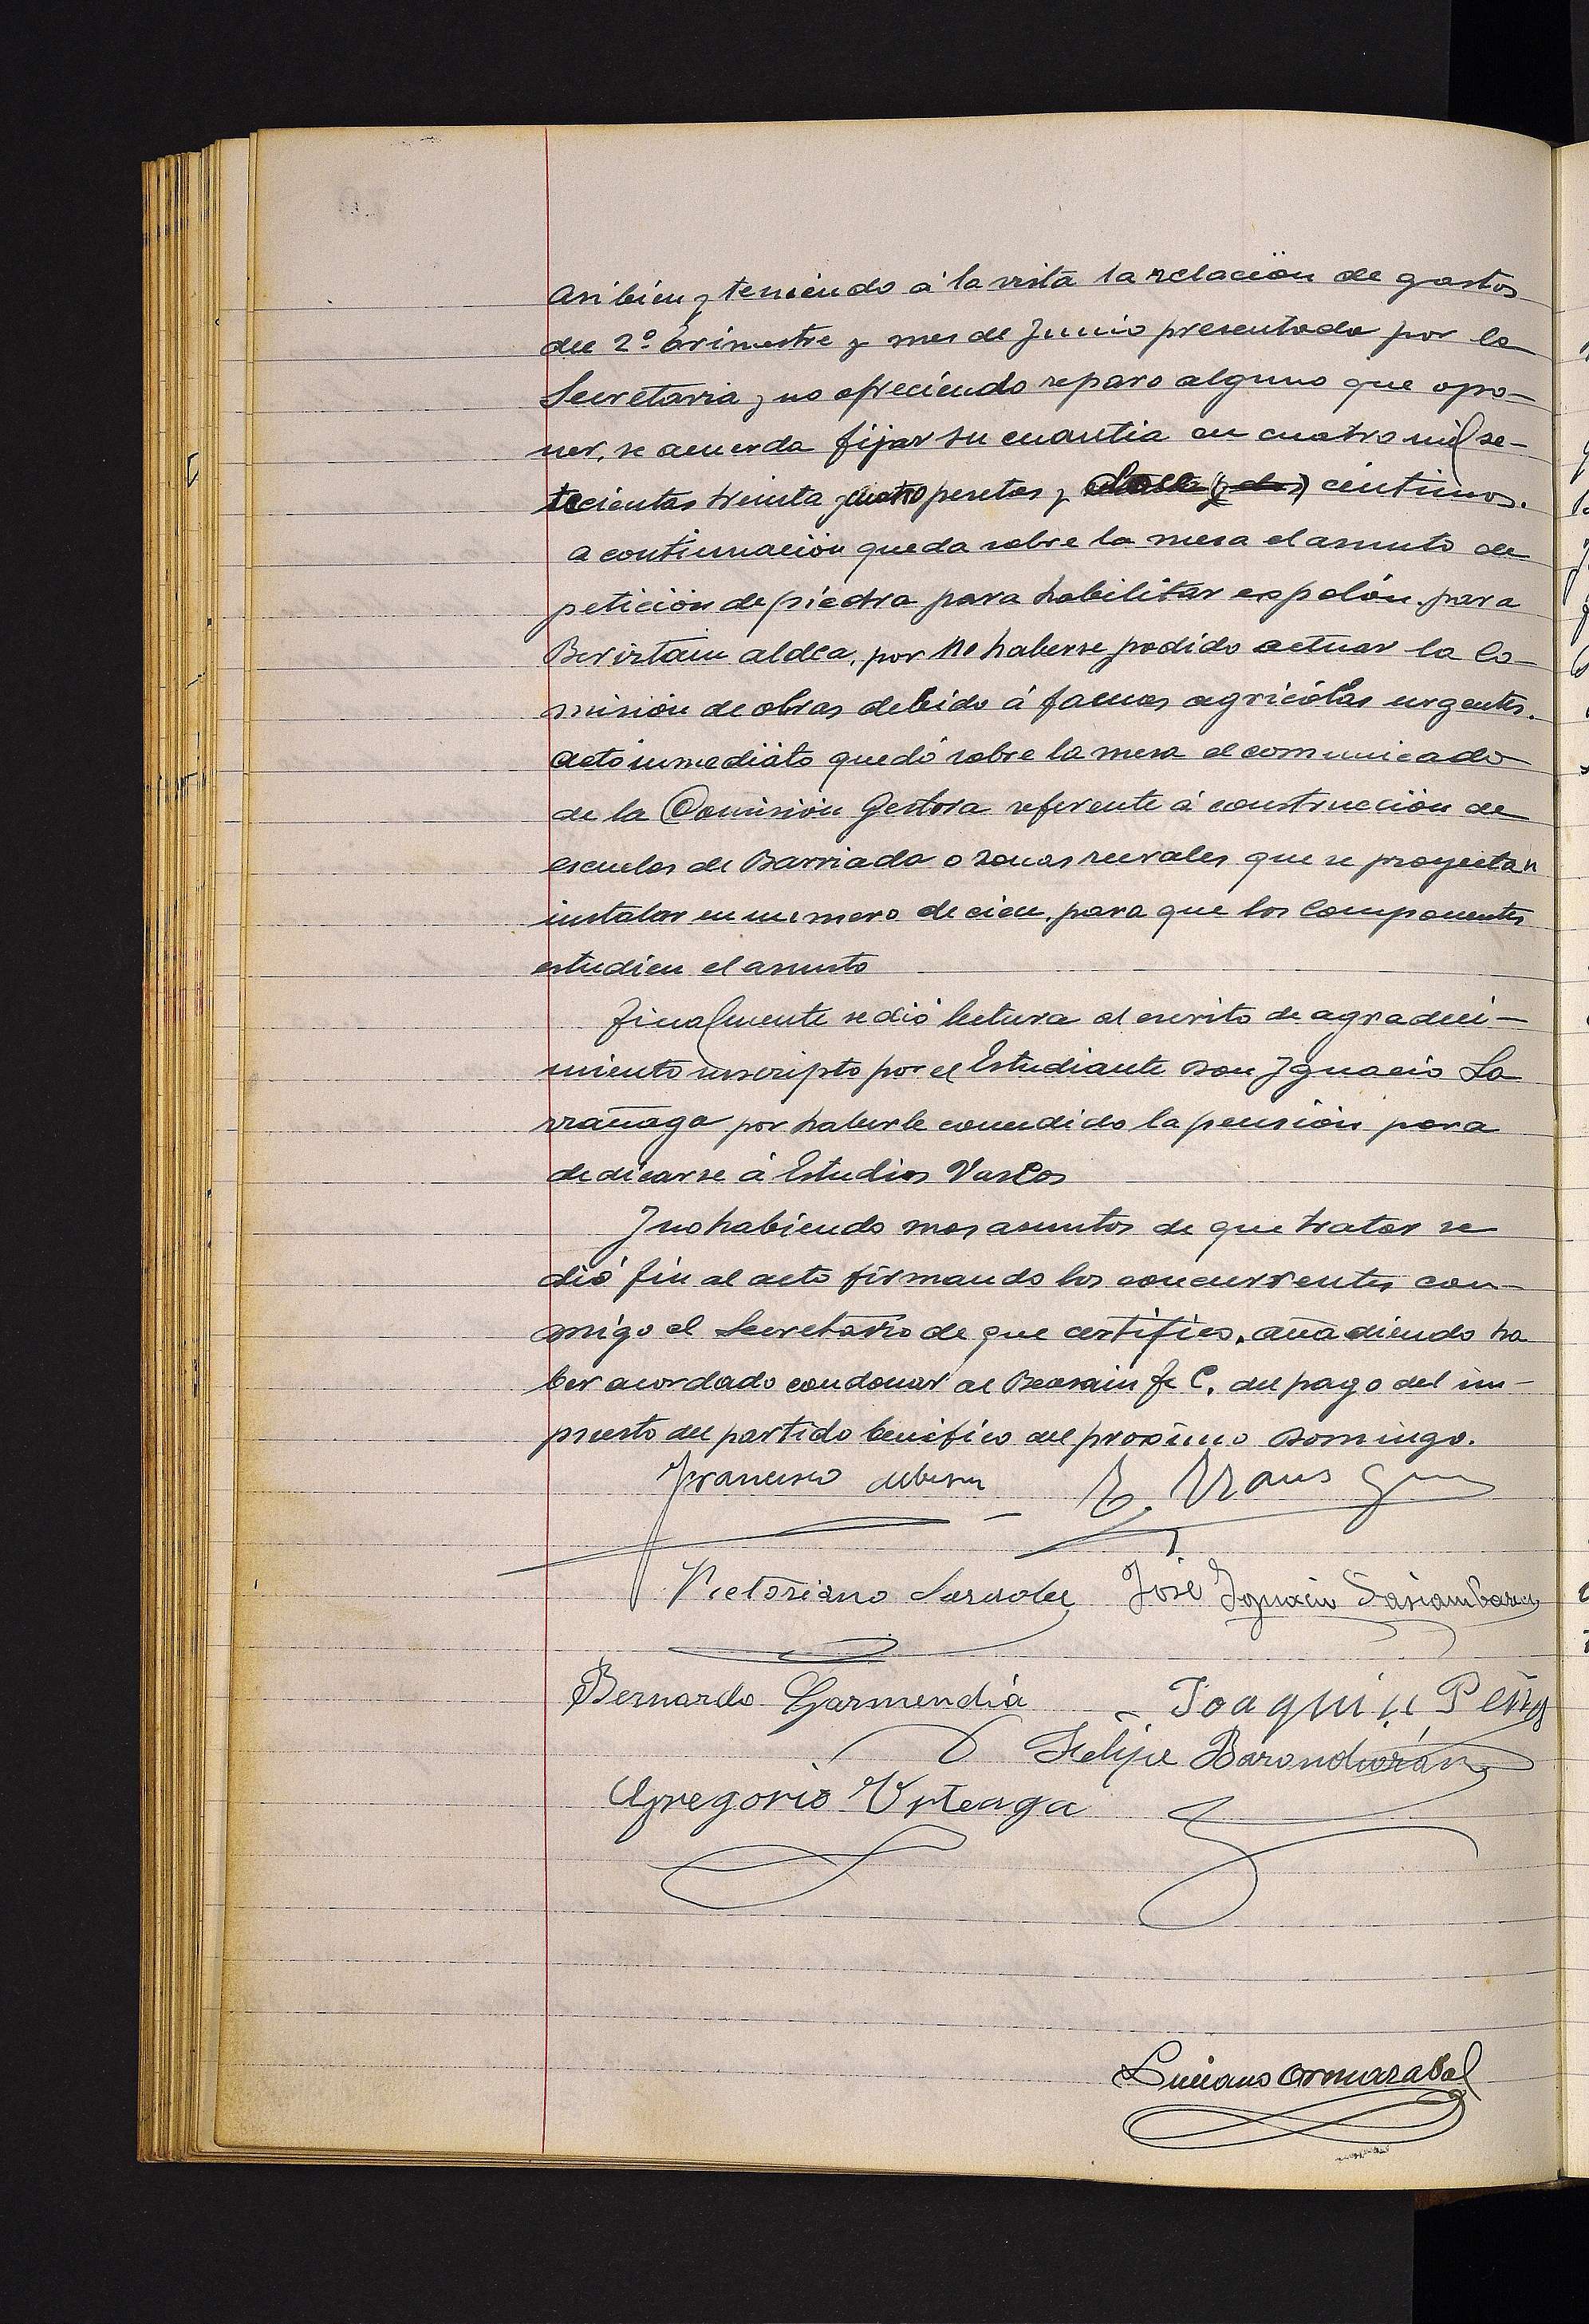 Asi bien y teniendo á la vista la relación de gastos
del 2º trimestre y mes de Junio presentada por la
Secretaria y no ofreciendo reparo alguno que opo-
ner, se acuerda fijar su cuantia en cuatro mil se-
tecientas treinta y cuatro pesetas y céntimos.
A continuación queda sobre la mesa el asunto de
petición de piedra para habilitar espolón para
Beristain aldea, por no haberse podido actuar la Co-
misión de obras debido á faenas agricolas urgentes.
Acto inmediato quedó sobre la mesa el comunicado
de la Comisión Gestora referente á construcción de
escuelas de Barriada o zonas rurales que se proyectan
instalar en numero de cien, para que los componentes
estudien el asunto
Finalmente se dió lectura al escrito de agradeci-
miento suscripto por el Estudiante Don Ignacio La
rrañaga por haberle concedido la pensión para
dedicarse á Estudios Vascos
Y no habiendo mas asuntos de que tratar se
dió fin al acto firmando los concurrentes con-
migo el Secretario de que certifico, añadiendo ha
ber acordado condonar al Beasain F. C. del pago del im-
puesto del partido benéfico del proximo Domingo.
Francisco
Victoriano José Ignacio
Bernardo Garmendia Joaquin
Felipe Barandiarán
Gregorio Urteaga
Luciano Ormazabal